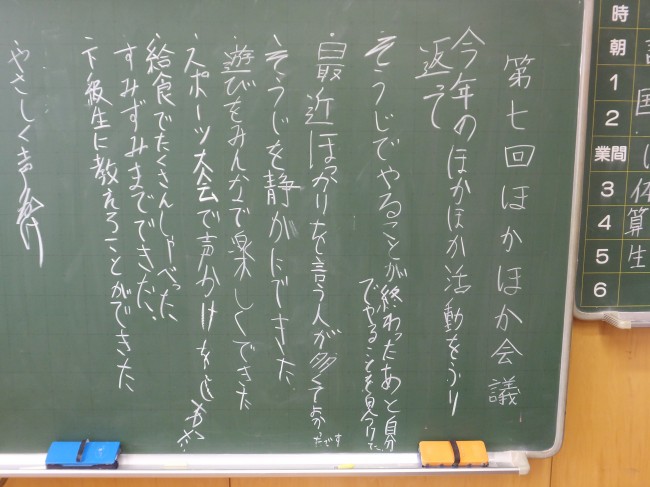 第七回ほかほか会議
今年のほかほか活動をふり
返って
そうじでやることが終わったあと自分
でやることを見つけた
最近ほかりを言う人が多くて
そうじを静かにできた
遊びをみんなで楽しくできた
スポーツ大会で声かけをし
給食でたくさんしゃべった
すみずみまでできた
下級生に教えることができた
やさしく声かけ
時
朝
1
2
業間
3
4
5
6
国
体
算
生